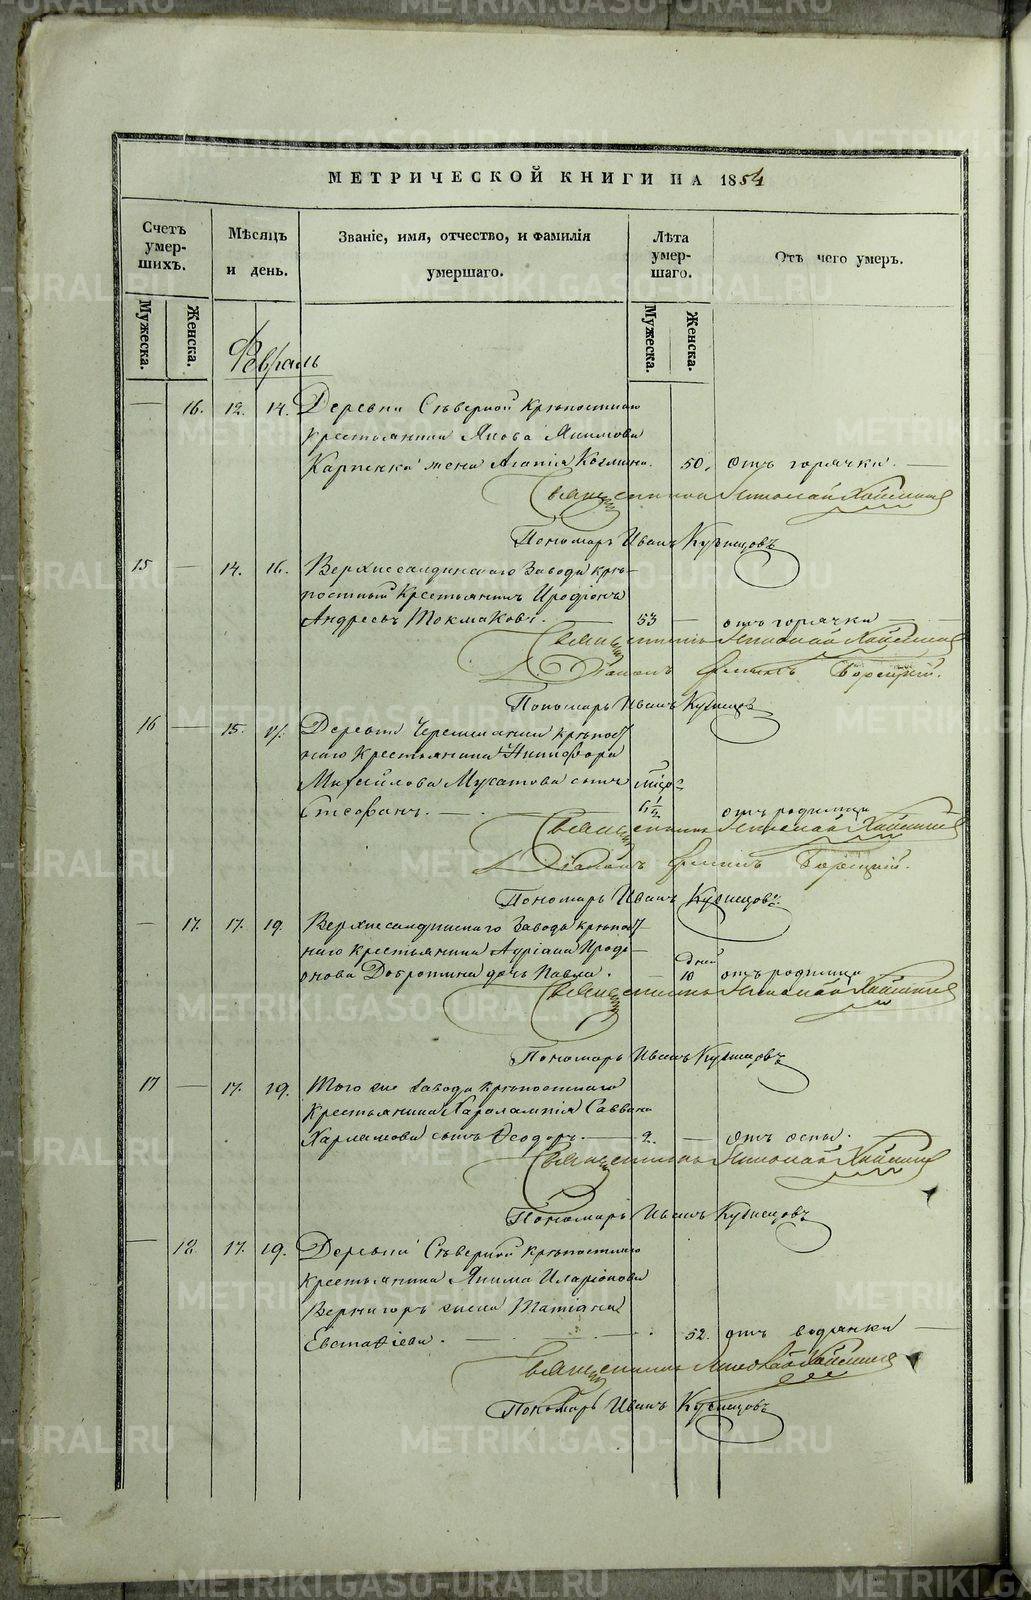 МЕТРИЧЕСКОЙ КНИГИ НА 1854
Счетъ умерших.
Мѣсяцъ и день.
Званіе, имя, отчество, и фамилія умершаго.
Лѣта умершаго.
Отъ чего умеръ.
Мужеска.
Женска.
Мужеска.
Женска.
Февраль
— 16. 12. 14. Деревни Сѣверной крѣпостнаго
крестьянина Якова Якимова
жена Агапія 50. отъ горячки. —
Священникъ Николай
Пономарь Иванъ Кузнецовъ
15 — 14. 16. Верхнесалдинскаго Завода крѣ-
постный Крестьянинъ Иродіонъ
Андреевъ Токмаковъ. — 53 — отъ горячки
Священникъ Николай
Діаконъ
Пономарь Иванъ Кузнецовъ
16 — 15. 17. Деревни крѣпост
наго Крестьянина Никифора
Михайлова сынъ
Стефанъ. — 1/2 отъ родимца
Священникъ Николай
Діаконъ
Пономарь Иванъ Кузнецовъ
— 17. 17. 19. Верхнесалдинскаго Завода крѣпост
наго крестьянина Адріана Ироді-
онова дочь Павла. — дней 10 отъ родимца
Священникъ Николай
Пономарь Иванъ Кузнецовъ
17 — 17. 19. Того же Завода крѣпостнаго
Крестьянина Харалампія Саввина
Харламова сынъ Ѳеодоръ. — 2. — отъ оспы.
Священникъ Николай
Пономарь Иванъ Кузнецовъ
— 18. 17. 19. Деревни Сѣверной крѣпостнаго
крестьянина Якима Иларіонова
жена Татіана
Евстафіева. — 52. отъ водянки —
Священникъ Николай
Пономарь Иванъ Кузнецовъ
METRIKI.GASO-URAL.RU